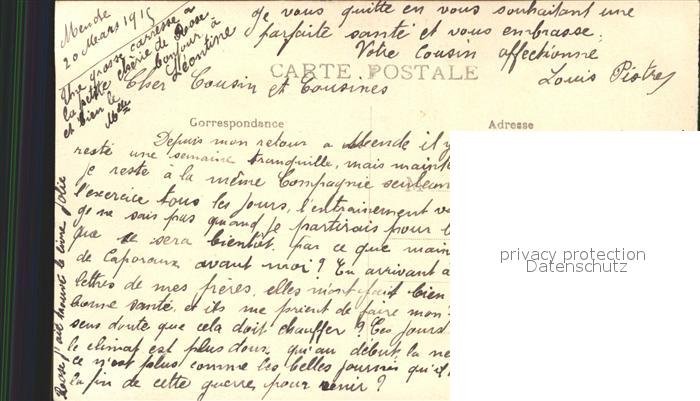 Mende
20 Mars 1915
Une grosse caresse à
la petite chérie de Rose
et bien le bonjour à
Mlle Léontine
Je vous quitte en vous souhaitant une
parfaite santé et vous embrasse.
Votre Cousin affectionné
Louis
CARTE POSTALE
Cher Cousin et Cousines
Correspondance
Adresse
Depuis mon retour a Mende il y
resté une semaine tranquille, mais maint
je reste à la même Compagnie seulem
l'exercice tous les jours, l'entrainement v
je ne sais pas quand je partirais pour l
que ce sera bientôt, par ce que main
de Caporaux avant moi? En arrivant à
lettres de mes frères, elles m'ont fait bien
bonne santé, et ils me prient de faire mon
sens doute que cela doit chauffer? Ces jours
le climat est plus doux, qu'au début, la ne
ce n'est plus comme les belles journées qu'il
la fin de cette guerre, pour venir?
j'ai trouvé le livre jolie
privacy protection
Datenschutz